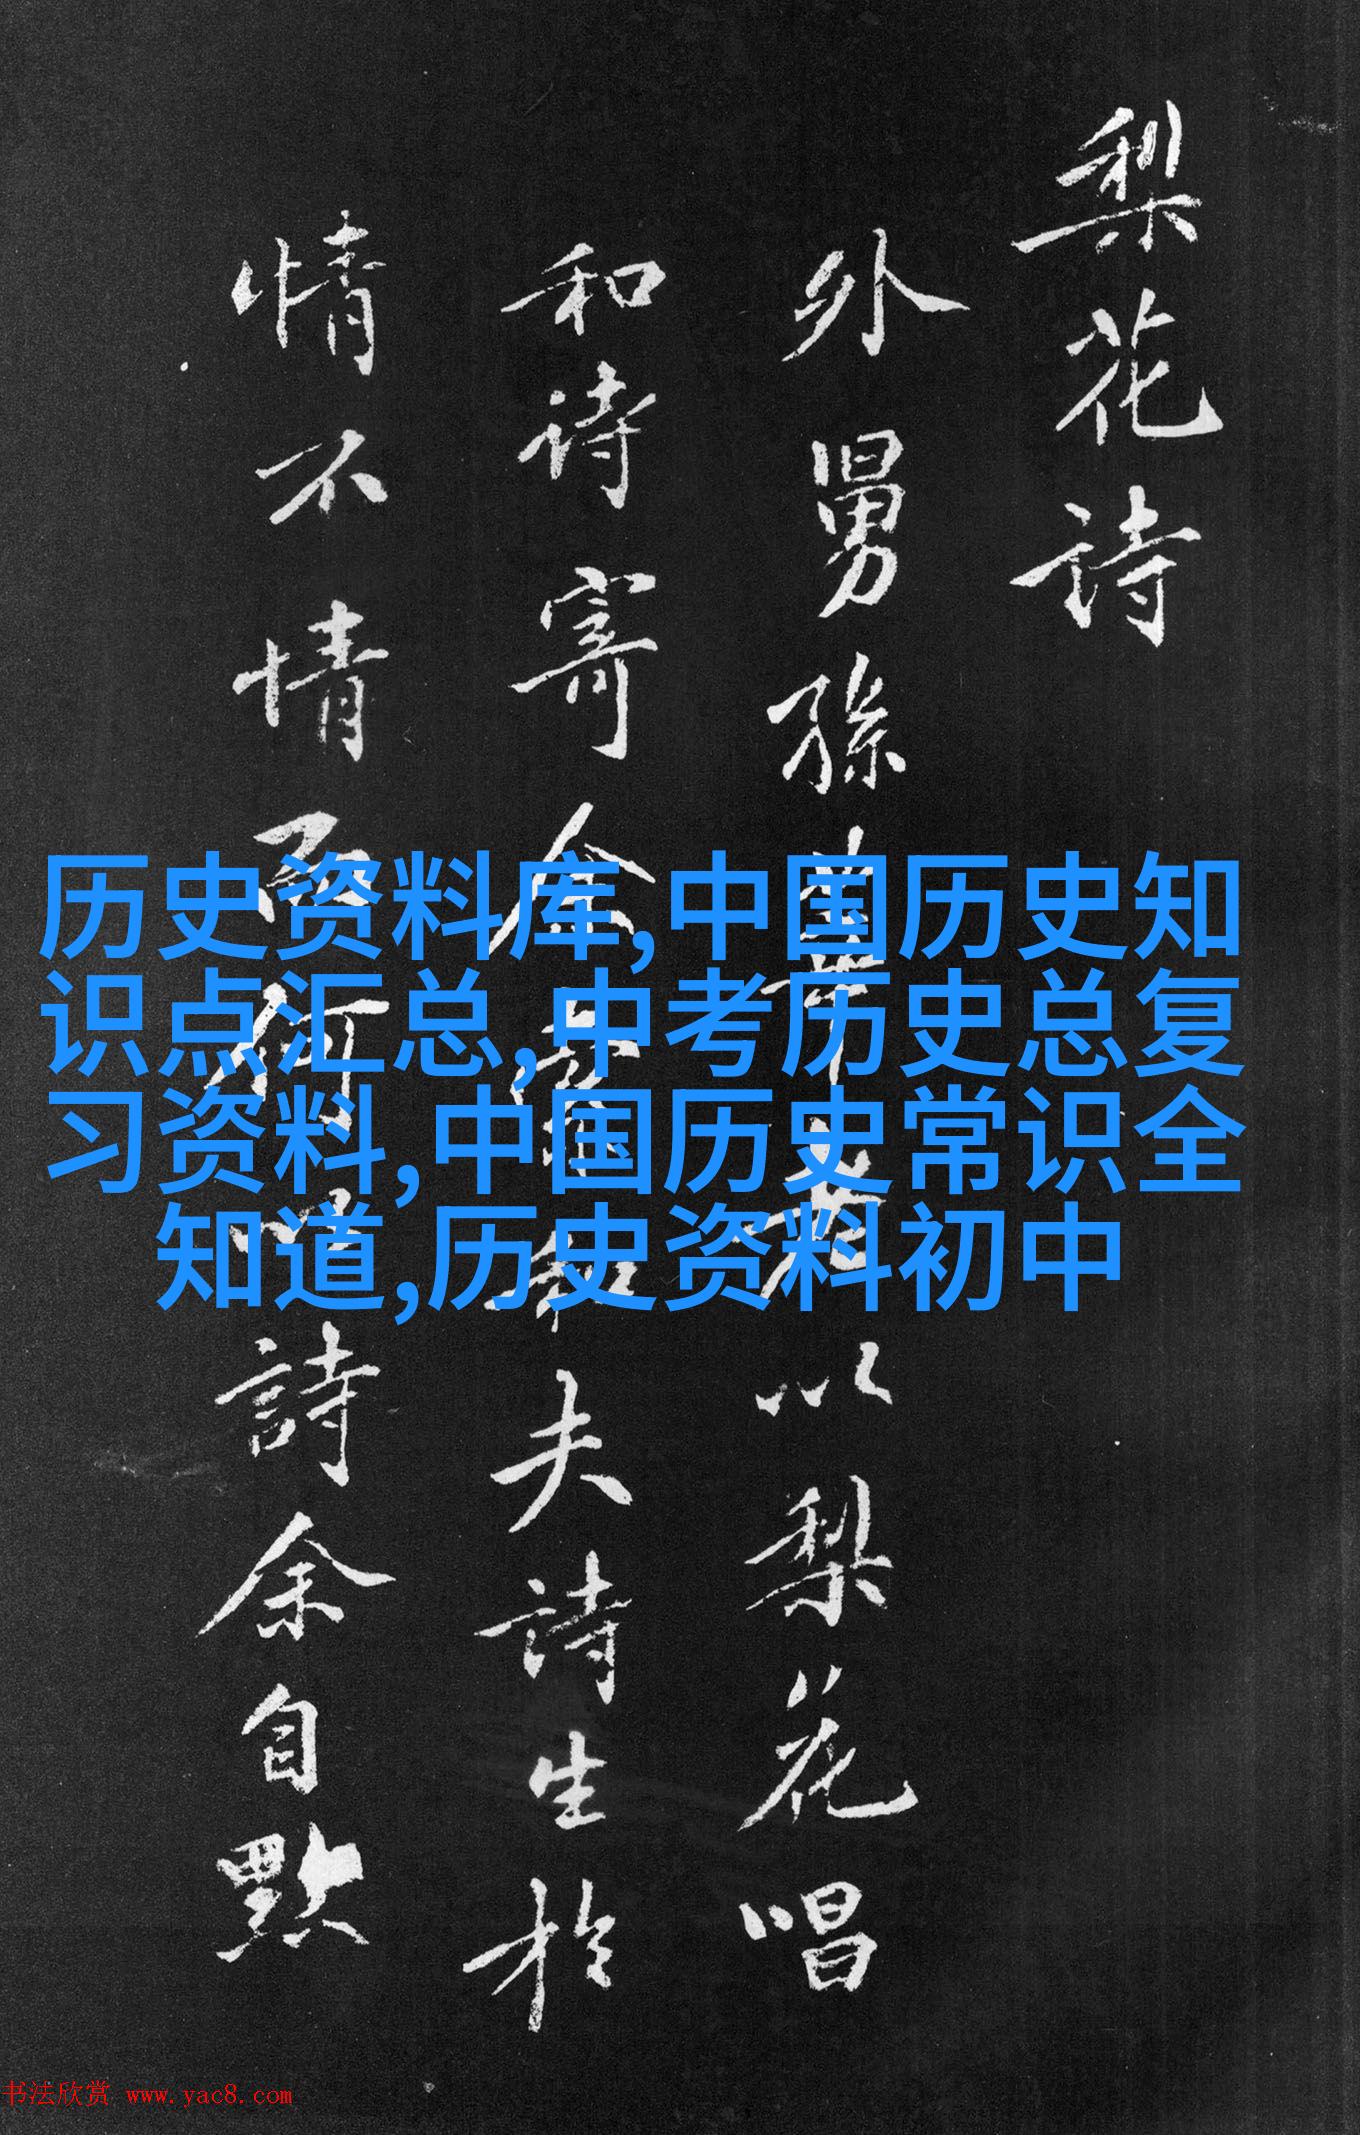 梨花詩
外舅孫莘老以梨花唱
和诗寄余余家和夫诗生於
情不情而何以詩余自點
历史资料库,中国历史知
识点汇总,中考历史总复
习资料,中国历史常识全
知道,历史资料初中
书法欣赏 www.yac8.com